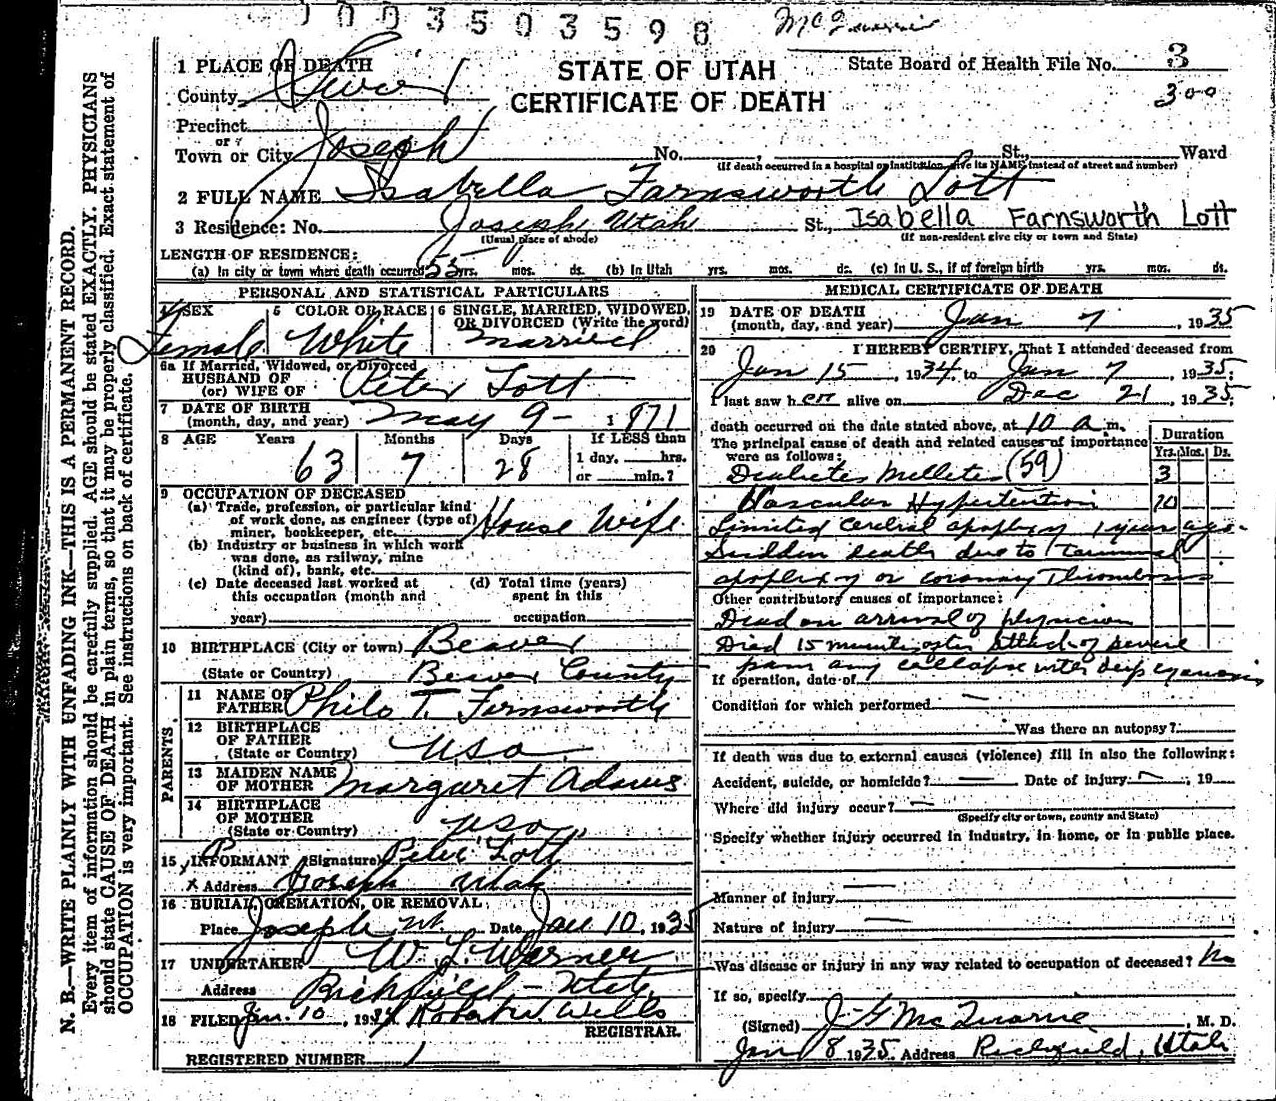 0003503598
McQuarrie
1 PLACE OF DEATH
STATE OF UTAH
CERTIFICATE OF DEATH
State Board of Health File No. 3
300
County Sevier
Precinct
or
Town or City Joseph No. , St., Ward
(If death occurred in a hospital or institution, give its NAME instead of street and number)
2 FULL NAME Isabella Farnsworth Lott
3 Residence: No. Joseph, Utah St., Isabella Farnsworth Lott
(Usual place of abode) (If non-resident give city or town and State)
LENGTH OF RESIDENCE:
(a) In city or town where death occurred 55 yrs. mos. ds. (b) In Utah yrs. mos. ds. (c) In U. S., if of foreign birth yrs. mos. ds.
PERSONAL AND STATISTICAL PARTICULARS
4 SEX Female
5 COLOR OR RACE White
6 SINGLE, MARRIED, WIDOWED, OR DIVORCED (Write the word) Married
6a If Married, Widowed, or Divorced
HUSBAND OF
(or) WIFE OF Peter Lott
7 DATE OF BIRTH
(month, day, and year) May 9 - 1871
8 AGE Years 63 Months 7 Days 28 If LESS than
1 day, hrs.
or min.?
9 OCCUPATION OF DECEASED
(a) Trade, profession, or particular kind
of work done, as engineer (type of)
miner, bookkeeper, etc. House Wife
(b) Industry or business in which work
was done, as railway, mine
(kind of), bank, etc.
(c) Date deceased last worked at
this occupation (month and
year)
(d) Total time (years)
spent in this
occupation
10 BIRTHPLACE (City or town) Beaver
(State or Country) Beaver County
PARENTS
11 NAME OF
FATHER Philo T. Farnsworth
12 BIRTHPLACE
OF FATHER
(State or Country) USA
13 MAIDEN NAME
OF MOTHER Margaret Adams
14 BIRTHPLACE
OF MOTHER
(State or Country) USA
15 INFORMANT (Signature) Peter Lott
x Address Joseph Utah
16 BURIAL, CREMATION, OR REMOVAL
Place Joseph Ut. Date Jan 10, 1935
17 UNDERTAKER W. L. Warner
Address Richfield - Utah
18 FILED Jan. 10, 193 Wells
REGISTRAR.
REGISTERED NUMBER 1
MEDICAL CERTIFICATE OF DEATH
19 DATE OF DEATH
(month, day, and year) Jan 7, 1935
20 I HEREBY CERTIFY, That I attended deceased from
Jan 15, 1934, to Jan 7, 1935.
I last saw her alive on Dec 21, 1935.
death occurred on the date stated above, at 10 a.m.
The principal cause of death and related causes of importance
were as follows:
Duration
Yrs. Mos. Ds.
Diabetes Melletes (59) 3
Vascular Hypertention 10
Limited Cerebral apoplexy 1 year ago.
Sudden death due to Terminal
apoplexy or coronary Thrombosis
Other contributory causes of importance:
Dead on arrival of physician
Died 15 minutes after attack of severe
pain and collapse with deep cyanosis
If operation, date of
Condition for which performed —
Was there an autopsy?
If death was due to external causes (violence) fill in also the following:
Accident, suicide, or homicide? — Date of injury — , 19
Where did injury occur? —
(Specify city or town, county and State)
Specify whether injury occurred in industry, in home, or in public place.
Manner of injury —
Nature of injury —
Was disease or injury in any way related to occupation of deceased? No
If so, specify
(Signed) J G McQuarrie, M. D.
Jan 8 1935 Address Richfield, Utah
N. B.—WRITE PLAINLY WITH UNFADING INK—THIS IS A PERMANENT RECORD.
Every item of information should be carefully supplied. AGE should be stated EXACTLY. PHYSICIANS
should state CAUSE OF DEATH in plain terms, so that it may be properly classified. Exact statement of
OCCUPATION is very important. See instructions on back of certificate.